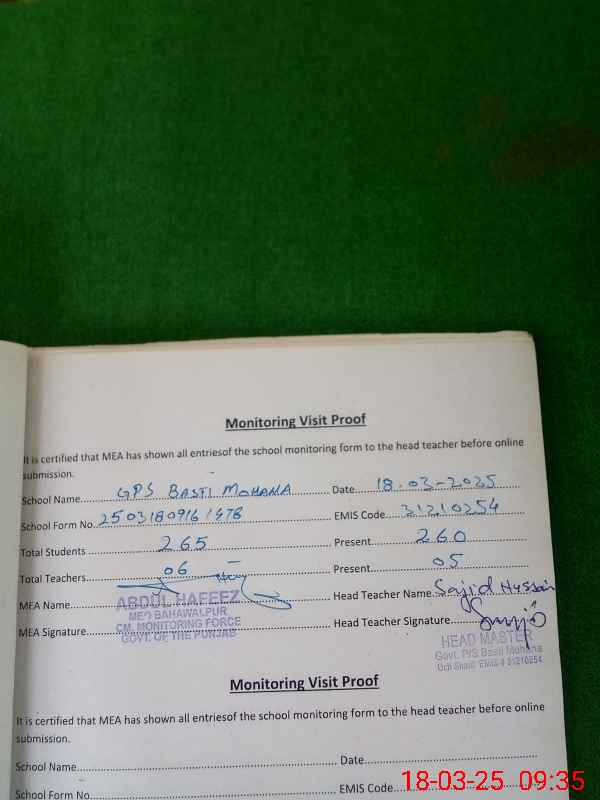 Monitoring Visit Proof
It is certified that MEA has shown all entriesof the school monitoring form to the head teacher before online
submission.
School Name GPS BASTI MOHANA Date 18-03-2025
School Form No. EMIS Code 31210254
Total Students 265 Present 260
Total Teachers 06 Present 05
MEA Name ABDUL HAFEEZ Head Teacher Name Sajid Hussain
MEO BAHAWALPUR
CM. MONITORING FORCE
MEA Signature GOVT. OF THE PUNJAB Head Teacher Signature
HEAD MASTER
Govt. P/S Basti Mohana
Uch Sharif EMIS # 31210254
Monitoring Visit Proof
It is certified that MEA has shown all entriesof the school monitoring form to the head teacher before online
submission.
School Name Date
School Form No EMIS Code
18-03-25 09:35